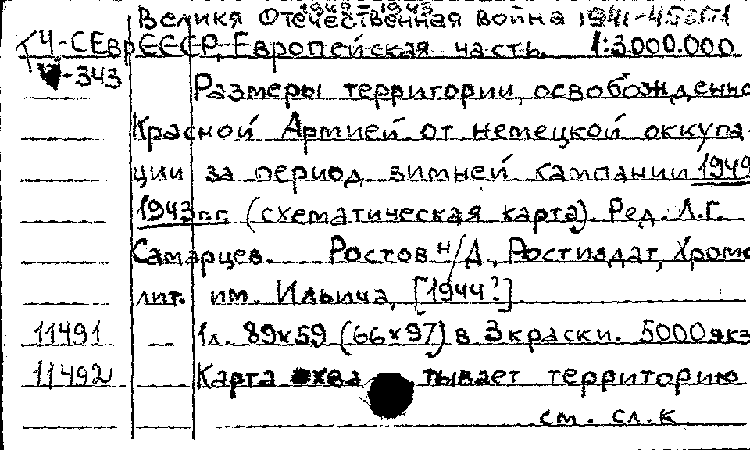 Великя Отечественная война 1941-45гг.
1942-1943
ГЧ-СЕвр СССР, Европейская часть. 1:3.000.000
V-343
Размеры территории, освобожденно
Красной Армией от немецкой оккупа-
ции за период зимней кампании 1942
1943 г.г. (схематическая карта). Ред. Л.Г.
Самарцев. Ростов н/Д., Ростиздат, Хромо
лит. им. Ильича, [1944?].
11491 1л. 89х59 (66х97) в 3 краски. 5000 экз
11492 Карта охва тывает территорию
см. сл. к